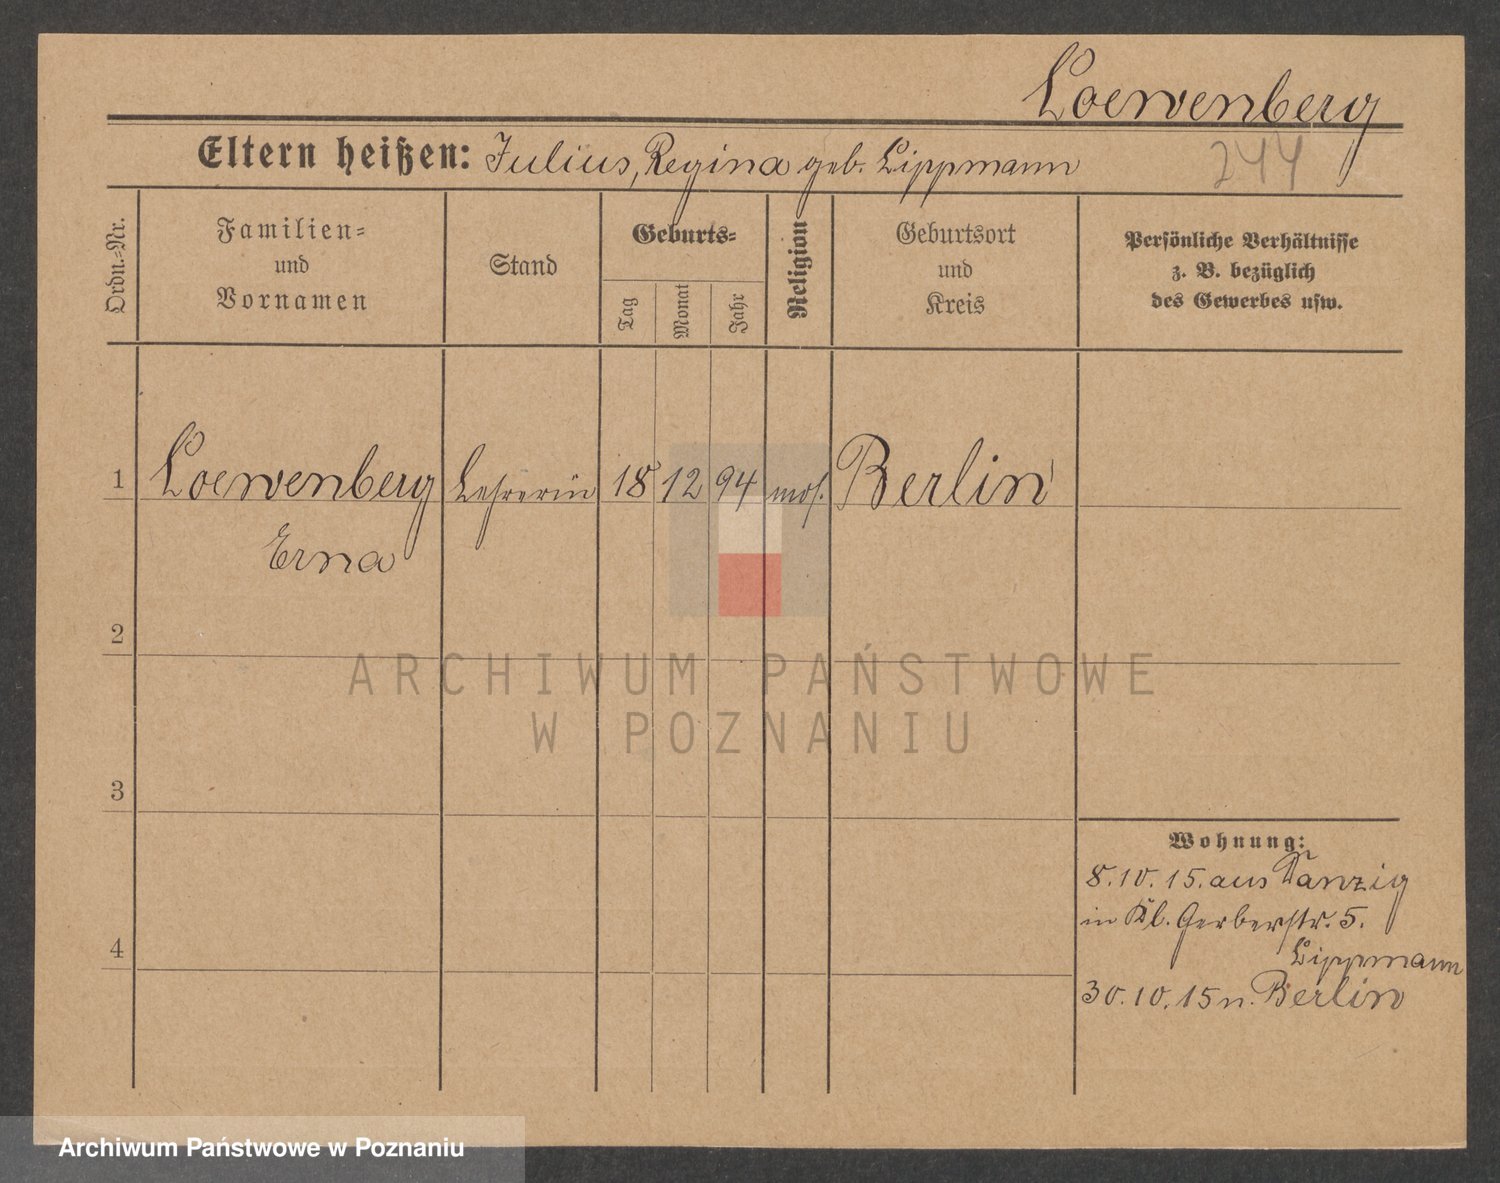 Loewenberg
Eltern heißen: Julius, Regina geb. Lippmann
244
Ordn.-Nr.
Familien-
und
Vornamen
Stand
Geburts-
Tag
Monat
Jahr
Religion
Geburtsort
und
Kreis
Persönliche Verhältnisse
z. B. bezüglich
des Gewerbes usw.
1 Loewenberg Lehrerin 18 12 94 mos. Berlin
Erna
2
ARCHIWUM PAŃSTWOWE
W POZNANIU
3
Wohnung:
8.10.15. aus Danzig
in Kl. Gerberstr. 5.
4
Lippmann
30.10.15 n. Berlin
Archiwum Państwowe w Poznaniu